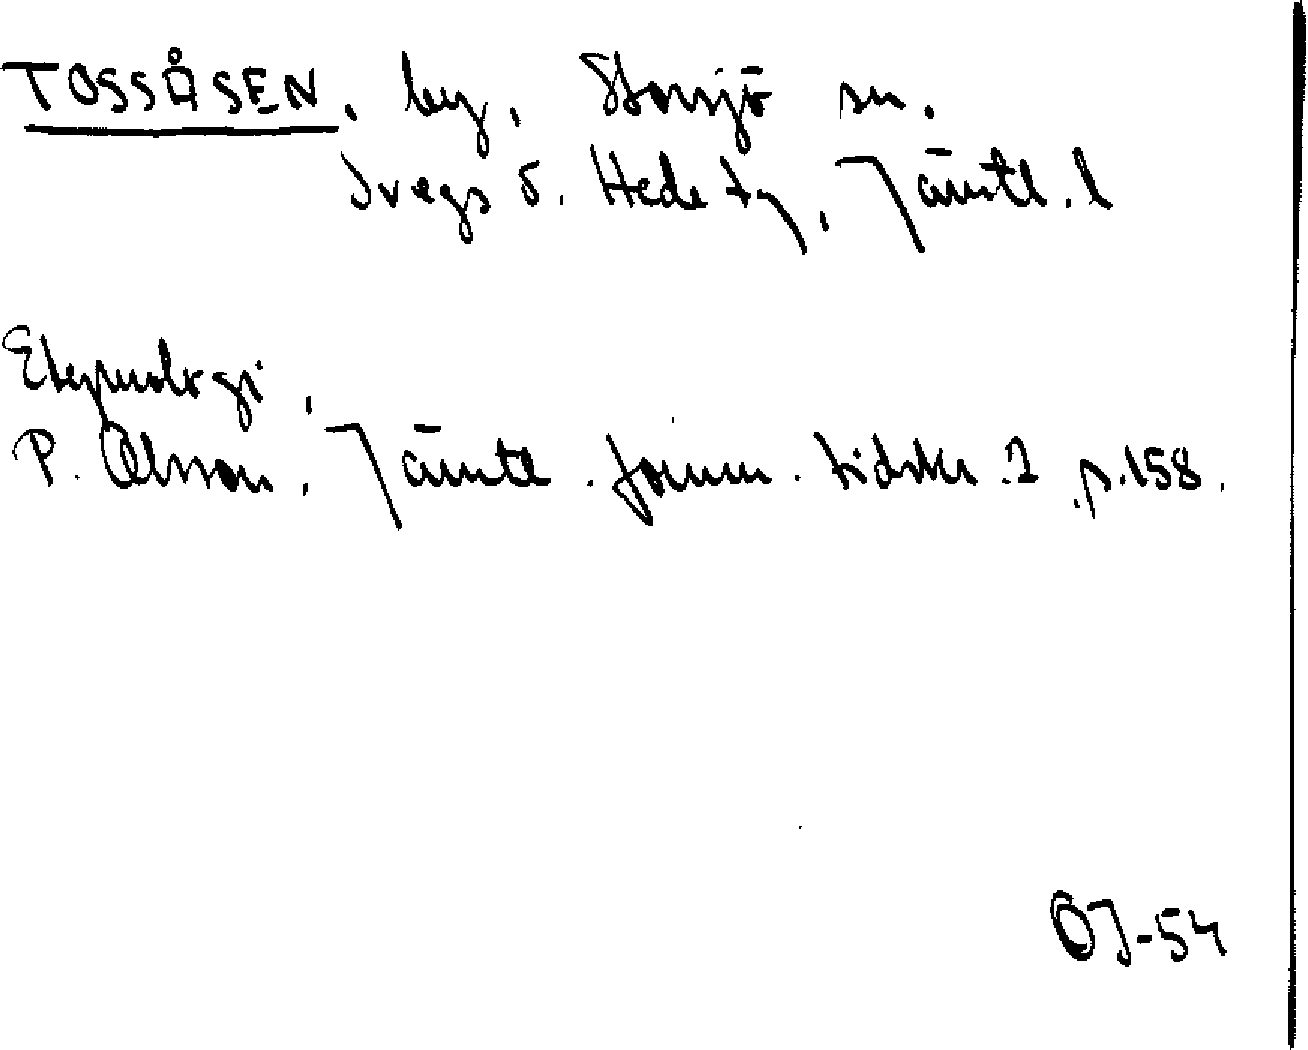 TOSSÅSEN, by, Storsjö sn.
Svegs o. Hede tg, Jämtl. l
Etymologi,
P. Olsson, Jämtl. fornm. tidskr. 2 p. 158.
OJ-54